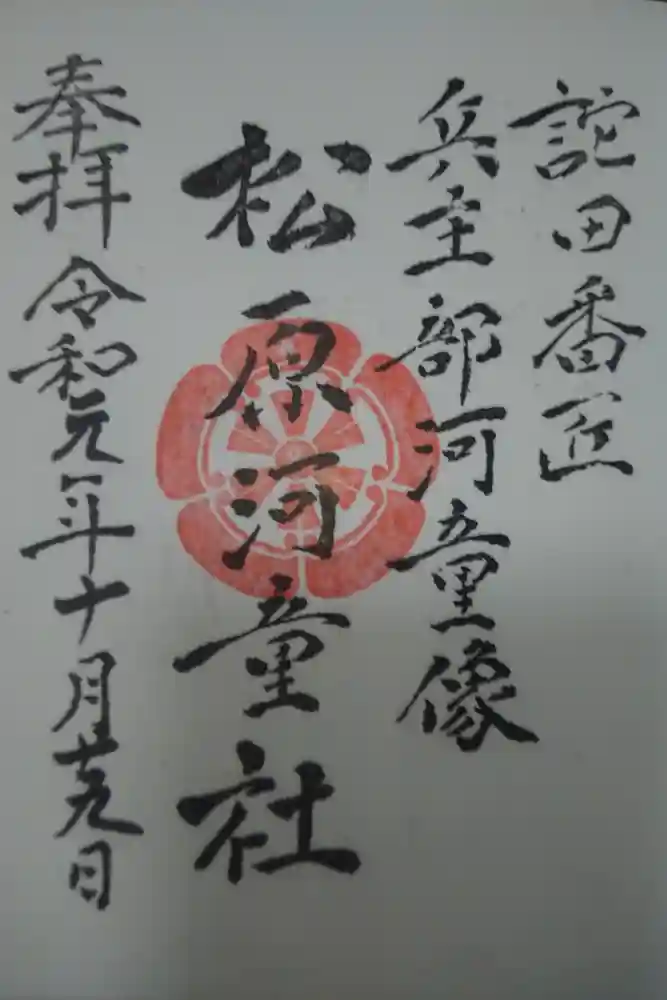 詑田番匠
兵主部河童像
松原河童社
奉拝 令和元年十月廿九日